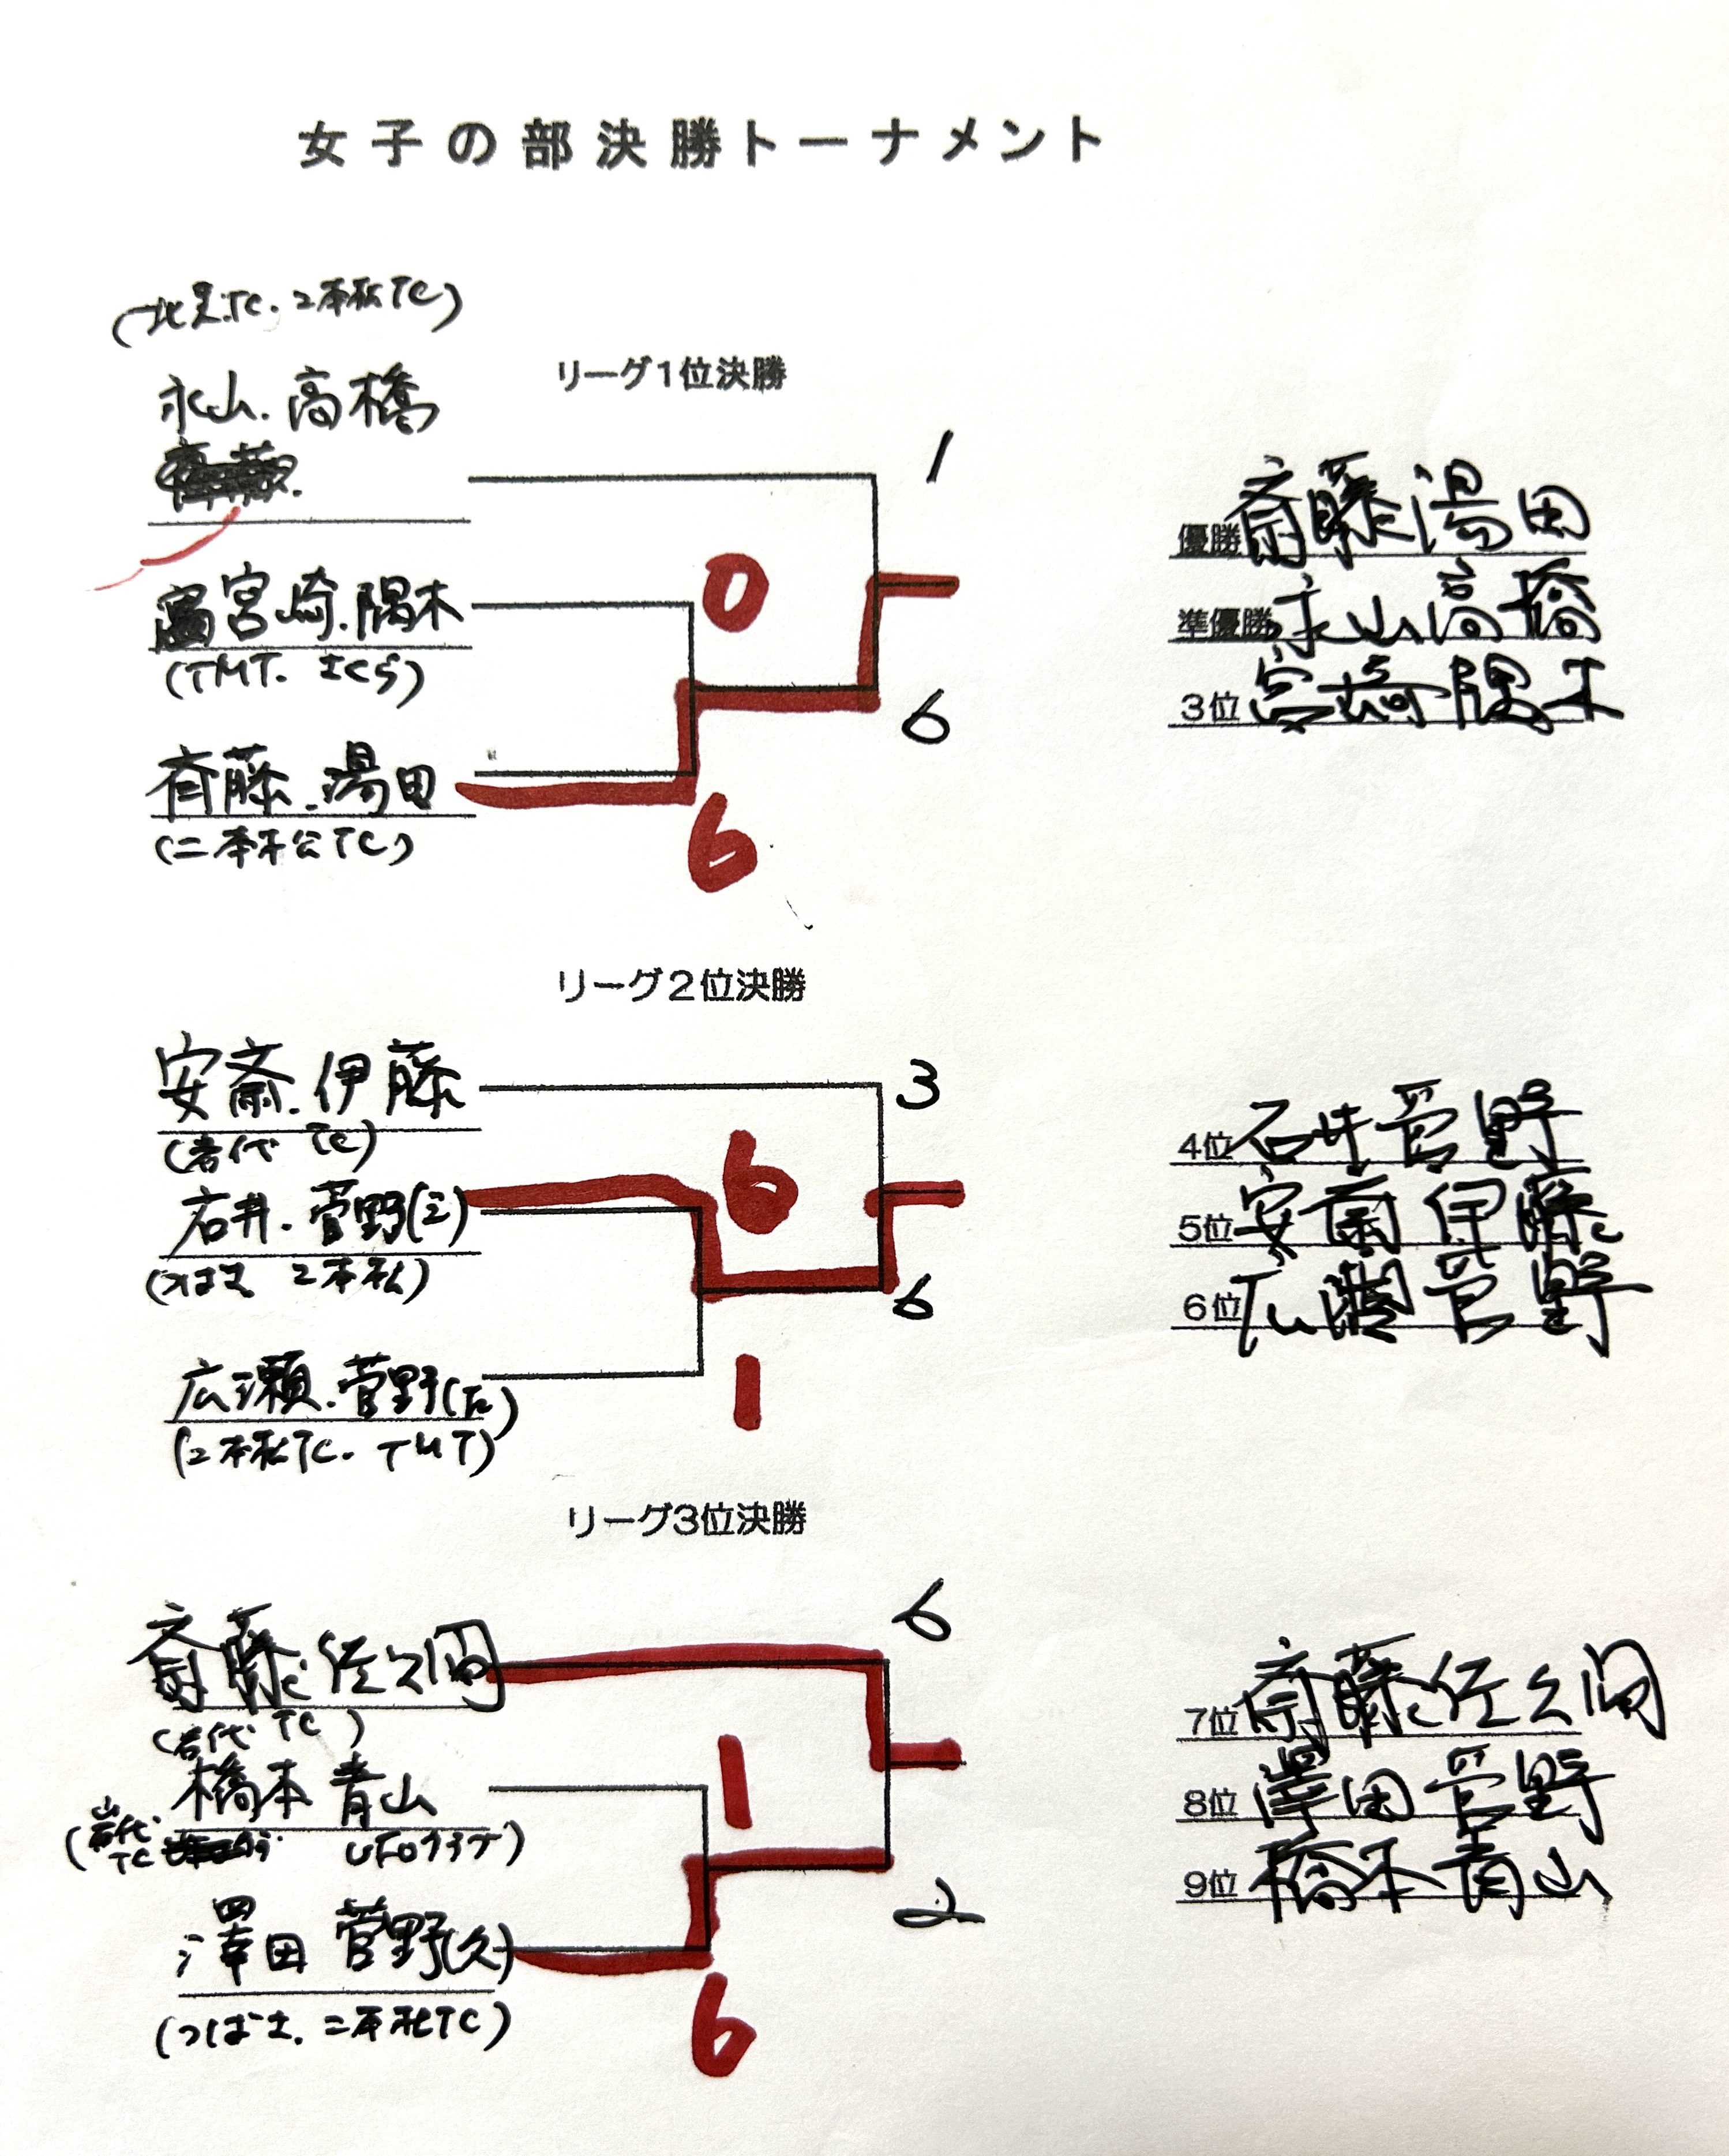 女子の部決勝トーナメント
(北芝TC. 二本松TC)
永山. 高橋
リーグ1位決勝
1
0
宮崎. 隅木
(TMT. さくら)
6
斉藤. 湯田
(二本松TC)
6
優勝 斎藤 湯田
準優勝 永山 高橋
3位 宮崎 隅木
リーグ2位決勝
安斎. 伊藤
(岩代 TC)
3
6
石井. 菅野(三)
(つばさ 二本松)
6
広瀬. 菅野(右)
(二本松TC. TMT)
1
4位 石井 菅野
5位 安斎 伊藤
6位 広瀬 菅野
リーグ3位決勝
斎藤 佐久間
(岩代 TC)
6
1
橋本 青山
(岩代TC UFOクラブ)
2
澤田 菅野(久)
(つばさ. 二本松TC)
6
7位 斎藤 佐久間
8位 澤田 菅野
9位 橋本 青山